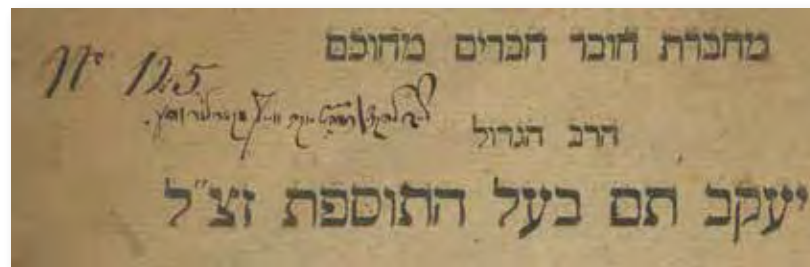 מחברת חובר חברים מחוכם
Nº 125
הרב הגדול
יעקב תם בעל התוספת זצ"ל